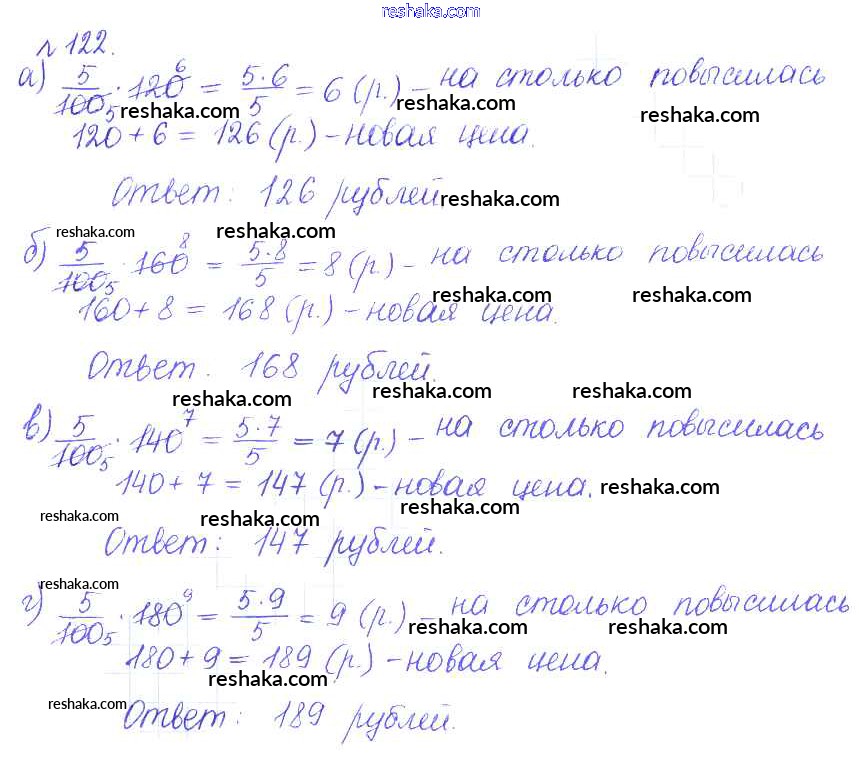 reshaka.com
№ 122.
а) 5/100 5 · 120 6 = 5·6/5 = 6 (р.) – на столько повысилась
reshaka.com reshaka.com reshaka.com
120 + 6 = 126 (р.) – новая цена.
Ответ: 126 рублей reshaka.com
reshaka.com reshaka.com
б) 5/100 5 · 160 8 = 5·8/5 = 8 (р.) – на столько повысилась
reshaka.com reshaka.com
160 + 8 = 168 (р.) – новая цена.
Ответ. 168 рублей.
reshaka.com reshaka.com reshaka.com
в) 5/100 5 · 140 7 = 5·7/5 = 7 (р.) – на столько повысилась
140 + 7 = 147 (р.) – новая цена. reshaka.com
reshaka.com reshaka.com reshaka.com
Ответ: 147 рублей.
reshaka.com
г) 5/100 5 · 180 9 = 5·9/5 = 9 (р.) – на столько повысилась
reshaka.com reshaka.com
180 + 9 = 189 (р.) – новая цена.
reshaka.com
reshaka.com
Ответ: 189 рублей.